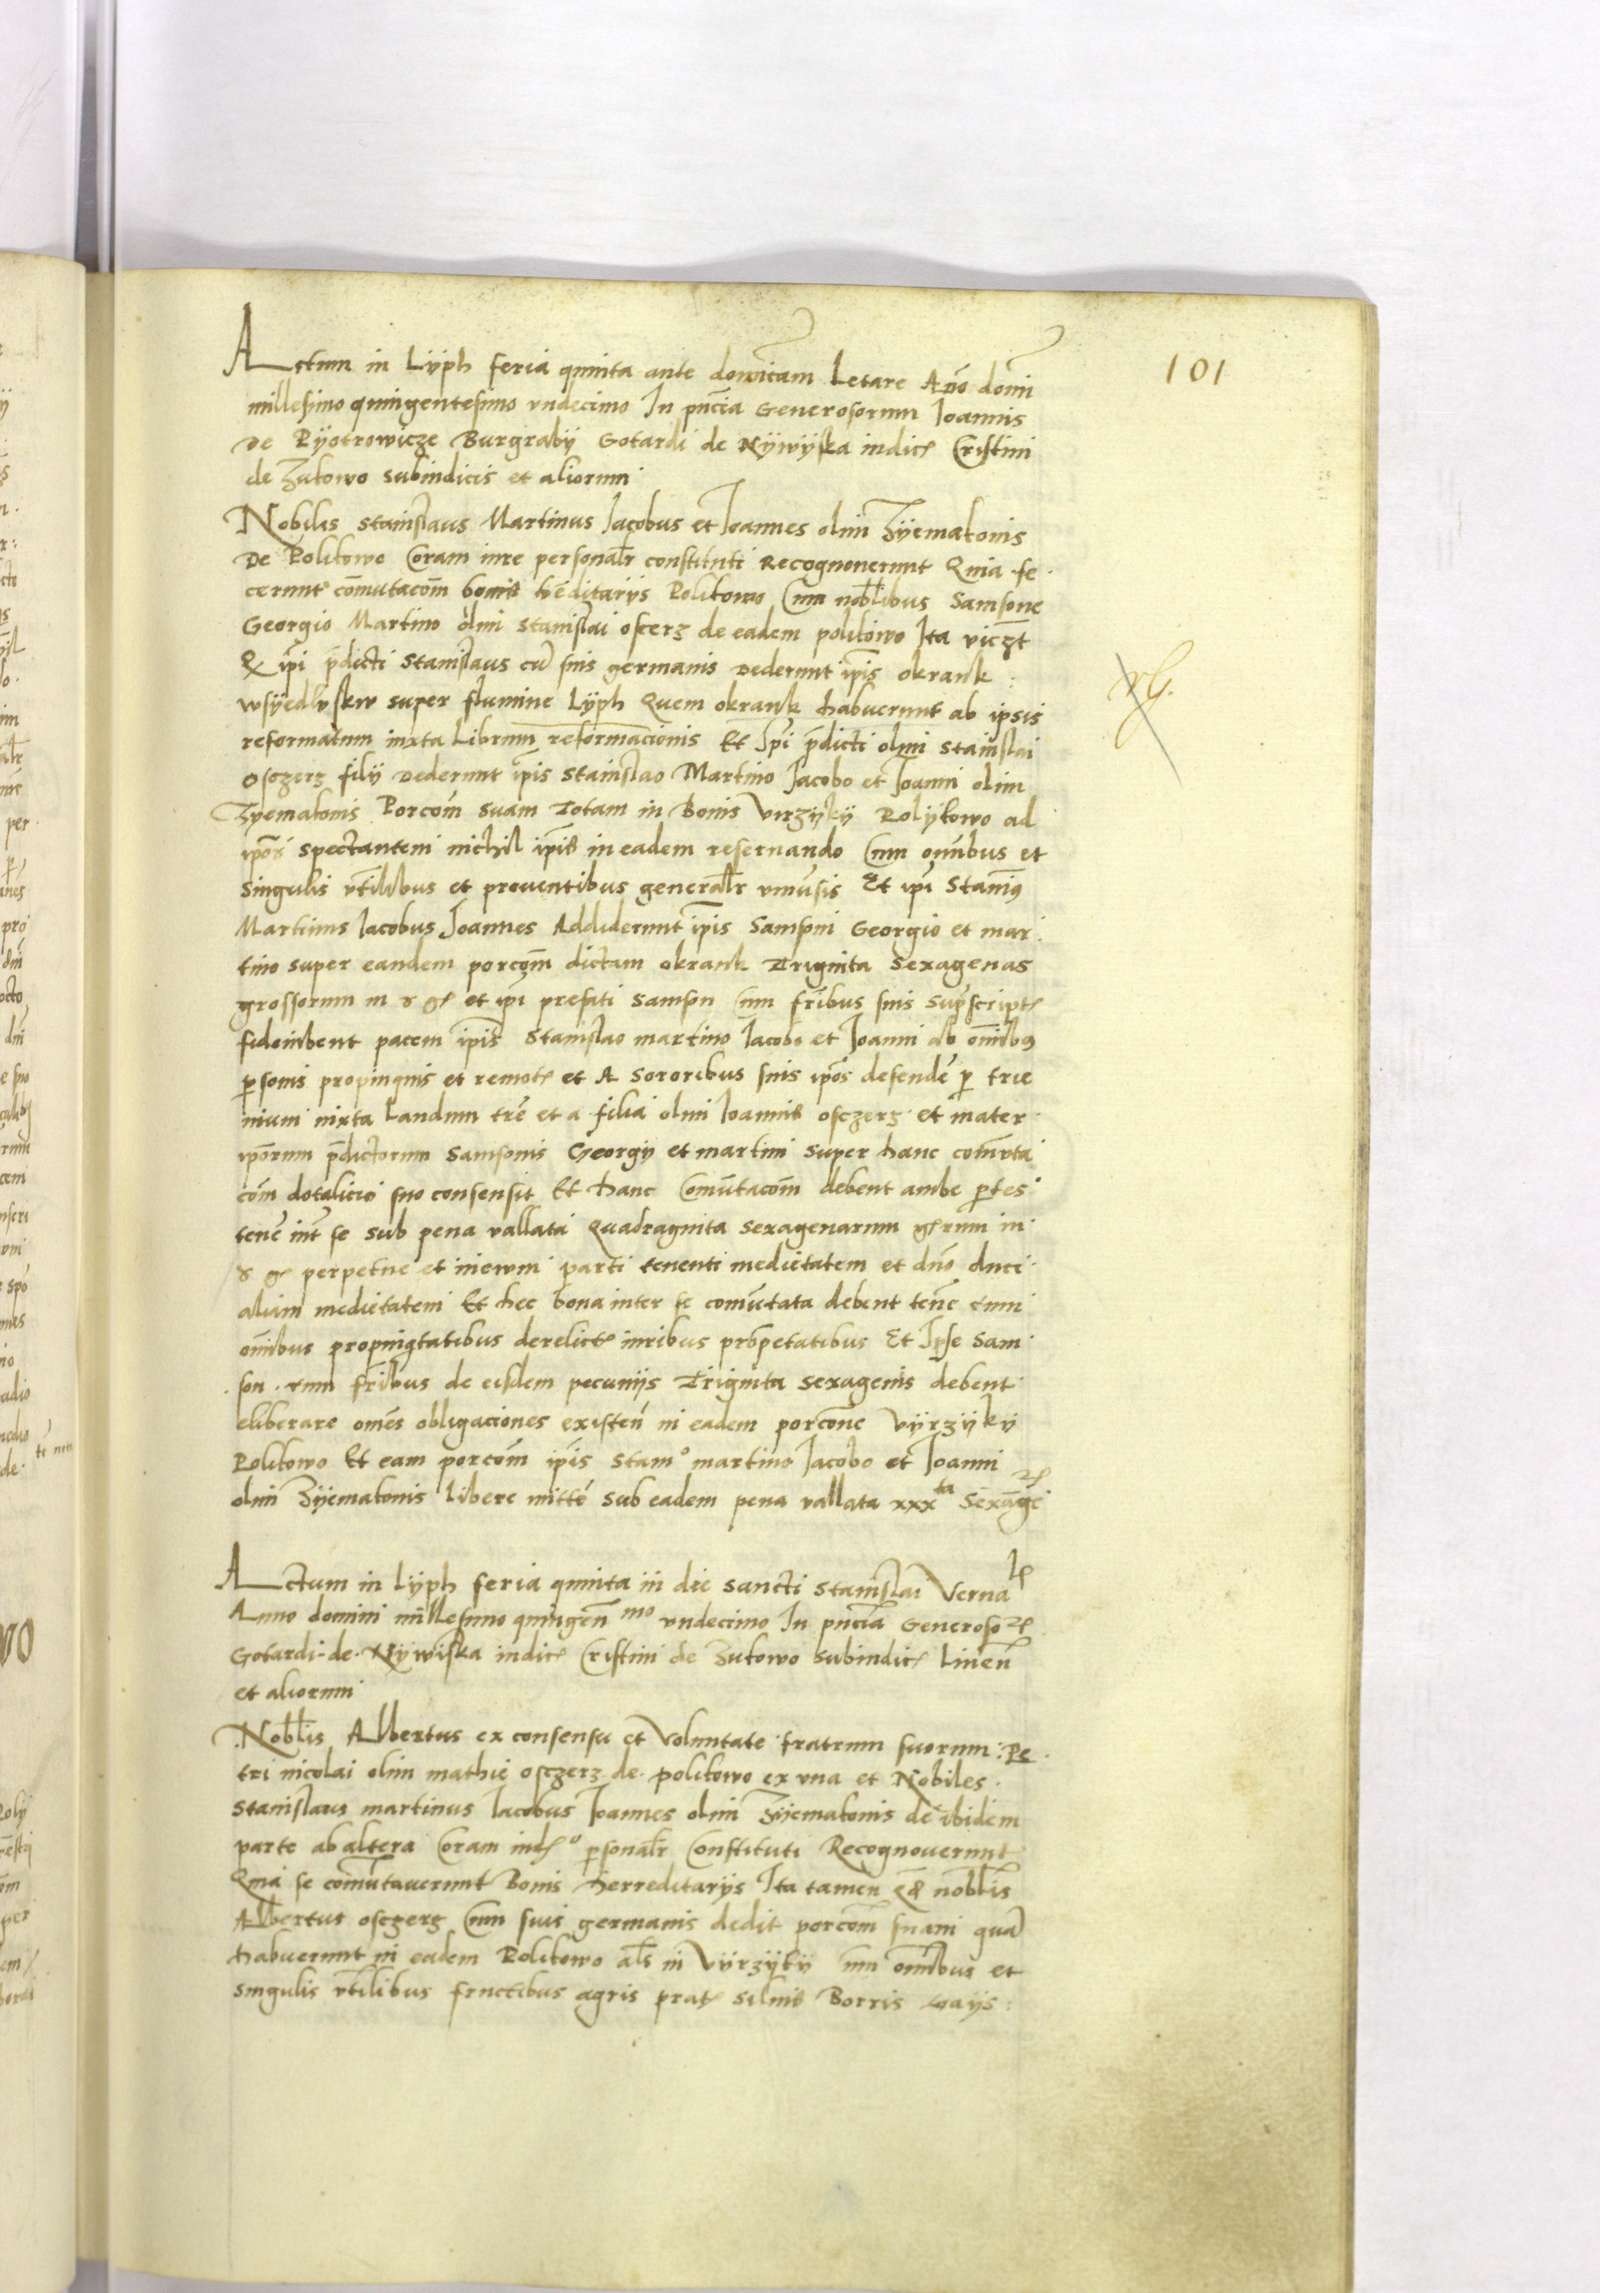 101
Actum in Lyph feria quinta ante dominicam Letare Anno domini
millesimo quingentesimo vndecimo In pncia Generosorum Ioannis
De Pyotrowicze Burgrabij Gotardi de Nywyska iudic Cristini
de Zukowo subiudicis et aliorum
Nobiles Stanislaus Martinus Iacobus et Ioannes olim Zyemakonis
De Politowo Coram iure personalr constituti Recognouerunt Quia fe
cerunt comutacom bonis heditarijs Politowo Cum noblibus Sampsone
Georgio Martino olim Stanislai osserz de eadem politowo Ita viczt
Q ipi pdicti Stanislaus cu suis germanis Dederunt ipis okrank
super flumine Lyph Quem okrank habuerunt ab ipsis
reformatum iuxta Librum reformacionis Et Ipi pdicti olim Stanislai
Osczerz filij Dederunt ipis Stanislao Martino Iacobo et Ioanni olim
Zyemakonis Porcom suam Totam in Bonis Virzyky Polykowo ad
ipos spectantem nichil ipis in eadem reseruando Cum omibus et
singulis vtilibus et prouentibus generalr vniusis Et ipi Stanis
Martinus Iacobus Ioannes Addiderunt ipis Samsoni Georgio et mar
tino super eandem porcom dictam okrank Triginta Sexagenas
grossorum in et ipi prefati Samson Cum fribus suis supscript
fideiubent pacem ipis Stanislao martino Iacobo et Ioanni ab omibus
psonis propinquis et remot et A sororibus suis ipos defende p trie
nium iuxta Landum tre et a filia olim Ioannis osczerz et mater
iporum pdictorum Samsonis Georgij et martini super hanc comuta
com dotalicio suo consensit Et hanc Comutacom debent ambe ptes
tene int se sub pena vallata Quadraginta sexagenarum grum in
perpetue et in ewm parti tenenti medietatem et dno duci
aliam medietatem Et hec bona inter se comutata debent tene cum
omibus propinqtatibus derelict iuribus prpetatibus Et Ipse Sam
son cum fribus de eisdem pecunijs Triginta sexagenis debent
eliberare omes obligaciones existen in eadem porcone Vyrzyky
Politowo Et eam porcom ipis Stano martino Iacobo et Ioanni
olim Zyemakonis libere mitte sub eadem pena vallata xxxta Sexage
Actum in Lyph feria quinta in die sancti Stanislai Vernal
Anno domini millesimo quingenmo vndecimo In pncia Generoso
Gotardi de Nywiska iudic Cristini de Zukowo subiudic Liuen
et aliorum
Noblis Albertus ex consensu et Voluntate fratrum suorum Pe
tri nicolai olim mathie osczerz de politowo ex vna et Nobiles
Stanislaus martinus Iacobus Ioannes olim Zyemakonis de ibidem
parte ab altera Coram iudo psonalr Constituti Recognouerunt
Quia se comutauerunt Bonis herreditarijs Ita tamen noblis
Albertus osczerz Cum suis germanis dedit porcom suam qua
habuerunt in eadem Politowo als in Vyrzyky cum omibus et
singulis vtilibus fructibus agris prat siluis Borris gaijs